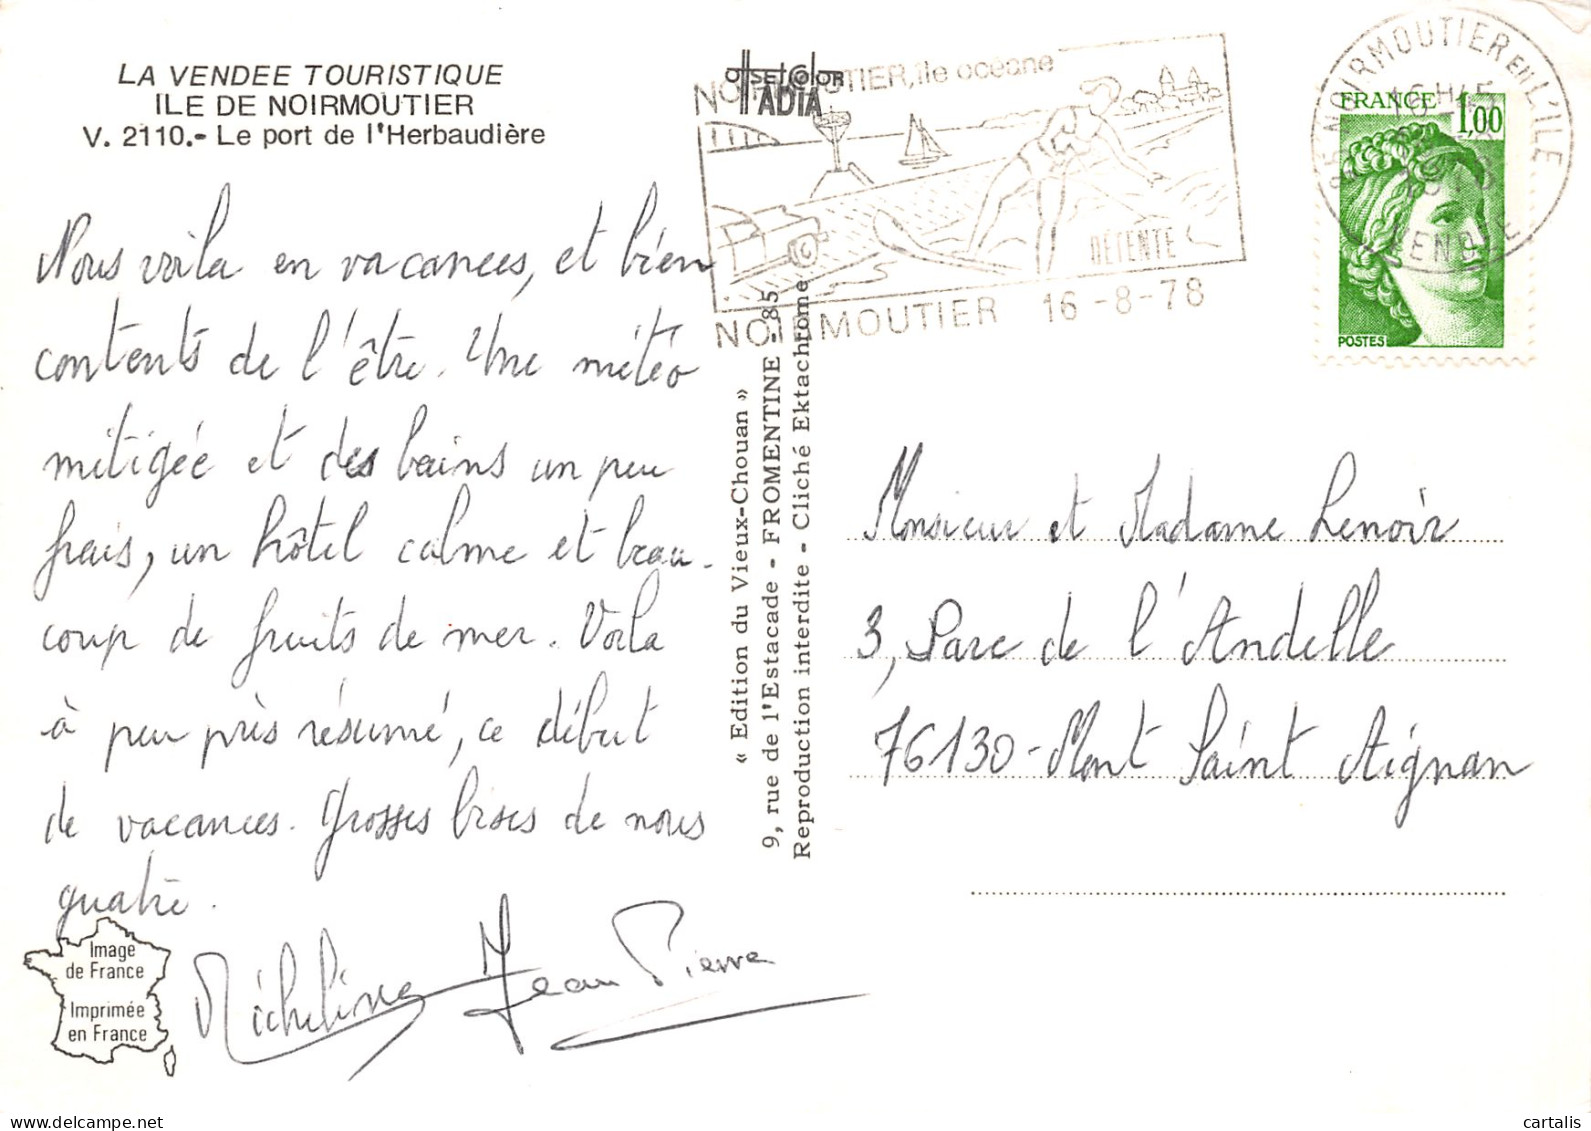 LA VENDEE TOURISTIQUE
ILE DE NOIRMOUTIER
V. 2110.- Le port de l'Herbaudière
Nous voila en vacances, et bien
contents de l'être. Une météo
mitigée et des bains un peu
frais, un hôtel calme et beau-
coup de fruits de mer. Voila
à peu près résumé, ce début
de vacances. Grosses bises de nous
quatre.
Micheline Jean Pierre
Image
de France
Imprimée
en France
offset color
ADIA
NOIRMOUTIER, île océane
DÉTENTE
NOIRMOUTIER 16-8-78
« Edition du Vieux-Chouan »
9, rue de l'Estacade - FROMENTINE - 85
Reproduction interdite - Cliché Ektachrome
85 NOIRMOUTIER EN L'ILE
VENDEE
FRANCE
1,00
POSTES
Monsieur et Madame Lenoir
3, Parc de l'Andelle
76130 - Mont Saint Aignan
www.delcampe.net
cartalis